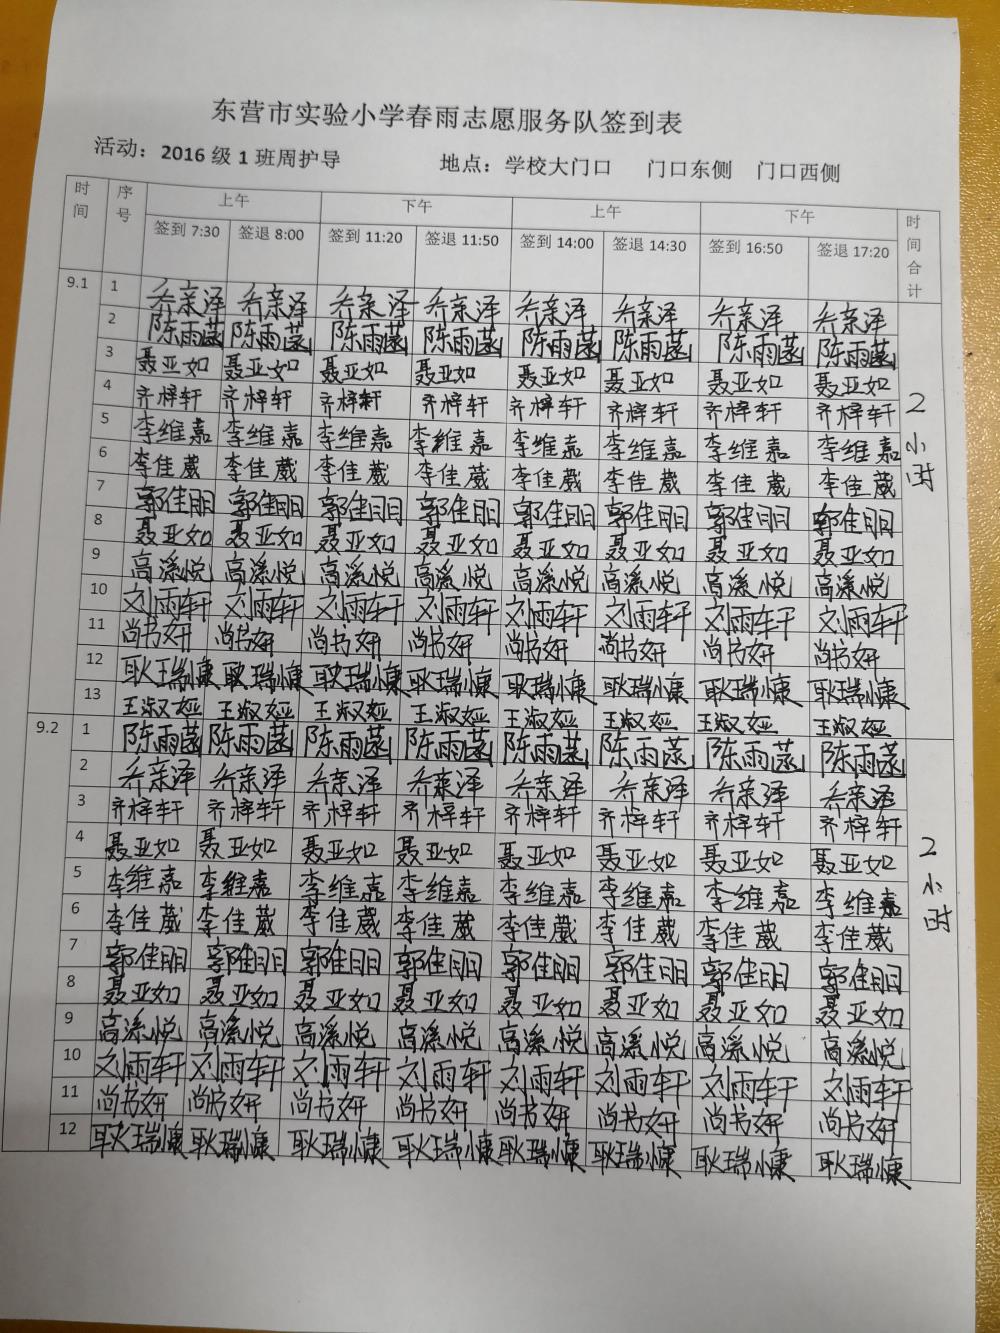 东营市实验小学春雨志愿服务队签到表
活动：2016 级 1 班周护导 地点：学校大门口 门口东侧 门口西侧
时间 序号 上午 下午 上午 下午 时间合计
签到 7:30 签退 8:00 签到 11:20 签退 11:50 签到 14:00 签退 14:30 签到 16:50 签退 17:20
9.1 1 乔亲泽 乔亲泽 乔亲泽 乔亲泽 乔亲泽 乔亲泽 乔亲泽 乔亲泽 2小时
2 陈雨菡 陈雨菡 陈雨菡 陈雨菡 陈雨菡 陈雨菡 陈雨菡 陈雨菡
3 聂亚如 聂亚如 聂亚如 聂亚如 聂亚如 聂亚如 聂亚如 聂亚如
4 齐梓轩 齐梓轩 齐梓轩 齐梓轩 齐梓轩 齐梓轩 齐梓轩 齐梓轩
5 李维嘉 李维嘉 李维嘉 李维嘉 李维嘉 李维嘉 李维嘉 李维嘉
6 李佳葳 李佳葳 李佳葳 李佳葳 李佳葳 李佳葳 李佳葳 李佳葳
7 郭佳明 郭佳明 郭佳明 郭佳明 郭佳明 郭佳明 郭佳明 郭佳明
8 聂亚如 聂亚如 聂亚如 聂亚如 聂亚如 聂亚如 聂亚如 聂亚如
9 高溪悦 高溪悦 高溪悦 高溪悦 高溪悦 高溪悦 高溪悦 高溪悦
10 刘雨轩 刘雨轩 刘雨轩 刘雨轩 刘雨轩 刘雨轩 刘雨轩 刘雨轩
11 尚书妍 尚书妍 尚书妍 尚书妍 尚书妍 尚书妍 尚书妍 尚书妍
12 耿瑞慷 耿瑞慷 耿瑞慷 耿瑞慷 耿瑞慷 耿瑞慷 耿瑞慷 耿瑞慷
13 王淑娅 王淑娅 王淑娅 王淑娅 王淑娅 王淑娅 王淑娅 王淑娅
9.2 1 陈雨菡 陈雨菡 陈雨菡 陈雨菡 陈雨菡 陈雨菡 陈雨菡 陈雨菡 2小时
2 乔亲泽 乔亲泽 乔亲泽 乔亲泽 乔亲泽 乔亲泽 乔亲泽 乔亲泽
3 齐梓轩 齐梓轩 齐梓轩 齐梓轩 齐梓轩 齐梓轩 齐梓轩 齐梓轩
4 聂亚如 聂亚如 聂亚如 聂亚如 聂亚如 聂亚如 聂亚如 聂亚如
5 李维嘉 李维嘉 李维嘉 李维嘉 李维嘉 李维嘉 李维嘉 李维嘉
6 李佳葳 李佳葳 李佳葳 李佳葳 李佳葳 李佳葳 李佳葳 李佳葳
7 郭佳明 郭佳明 郭佳明 郭佳明 郭佳明 郭佳明 郭佳明 郭佳明
8 聂亚如 聂亚如 聂亚如 聂亚如 聂亚如 聂亚如 聂亚如 聂亚如
9 高溪悦 高溪悦 高溪悦 高溪悦 高溪悦 高溪悦 高溪悦 高溪悦
10 刘雨轩 刘雨轩 刘雨轩 刘雨轩 刘雨轩 刘雨轩 刘雨轩 刘雨轩
11 尚书妍 尚书妍 尚书妍 尚书妍 尚书妍 尚书妍 尚书妍 尚书妍
12 耿瑞慷 耿瑞慷 耿瑞慷 耿瑞慷 耿瑞慷 耿瑞慷 耿瑞慷 耿瑞慷